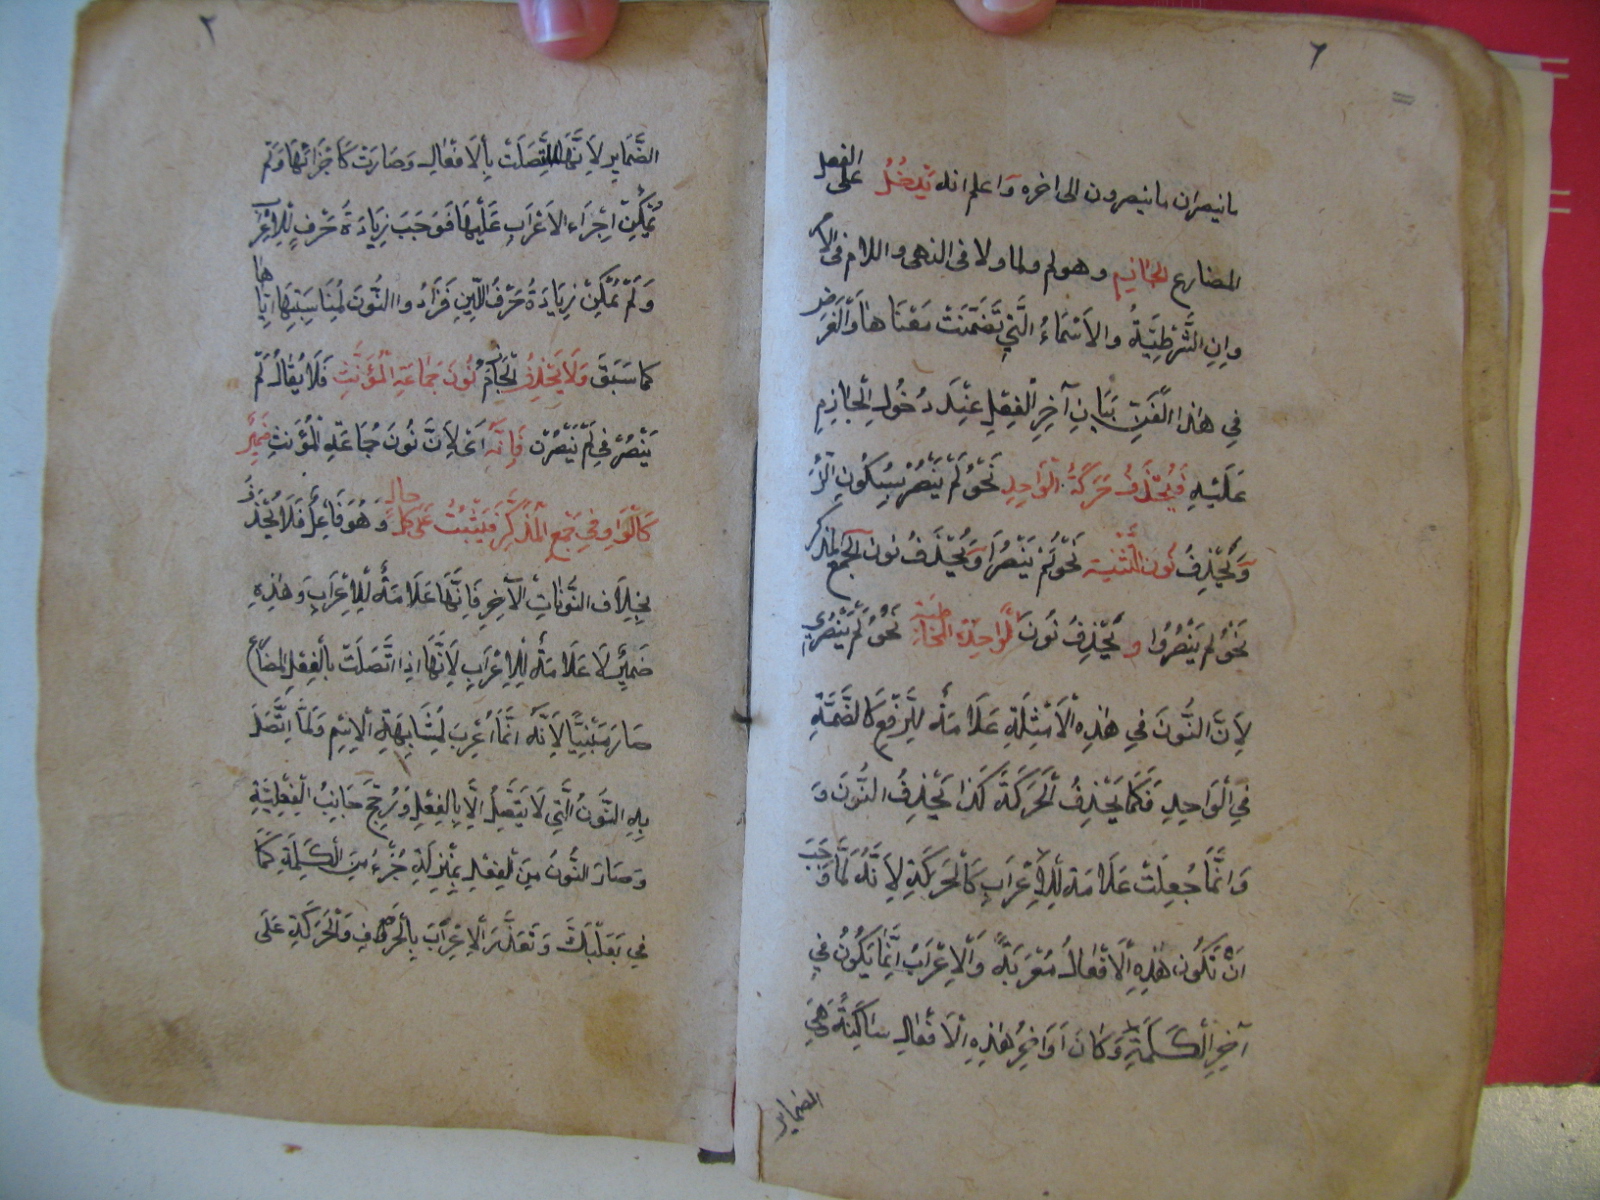 ٦
ما ينصران ما ينصرون الى اخره واعلم انه يَدخُلُ على الفعل
المضارع الجَازِم وهو لم ولما ولا فى النهى واللام فى الأمر
وإنِ الشَّرْطِيَّةُ والاَسْمَاءُ الَّتِي تَضَمَّنَتْ مَعْنَاهَا وَالْغَرَضُ
فِي هٰذا الْفَنِّ بَيَانِ آخِرِ الْفِعْلِ عِنْدَ دُخُولِ الْجَازِمِ
عَلَيْهِ فَيُحْذَفُ حَرَكَةُ الْوَاحِدِ نَحْوُ لَمْ يَنْصُرْ بِسُكُونِ الرَّ
وَيُحْذِفُ نُونَ التَّثْنِيَة نَحْوُ لَمْ يَنْصُرَا وَيُحْذَفُ نون الجَمْعِ المذكر
نَحْوُ لم يَنْصُرُوا وَيُحْذِفُ نُونَ الْوَاحِدَةِ الْمُخَاطَبَةِ نَحْوُ لَمْ يَنْصُرِي
لِاَنَّ النُّونَ فِي هٰذِهِ الْاَمْثِلَةِ عَلَامَةٌ لِلرَّفْعِ كَالضَّمَّةِ
فِي الْوَاحِدِ فَكَمَا يَحْذِفُ الْحَرَكَةَ كَذَا يَحْذِفُ النُّونَ وَ
وَاِنَّمَا جُعِلَتْ عَلَامَةً لِلْاِعْرَابِ كَالْحَرَكَةِ لِاَنَّهُ لَمَّا وَجَبَ
اَنْ تَكُونَ هٰذِهِ الْاَفْعَالُ مُعْرَبَةً وَالْاِعْرَابُ اِنَّمَا يَكُونُ فِي
آخِرِ الْكَلِمَةِ وَكَانَ اَوَاخِرُ هٰذِهِ الْاَفْعَالِ سَاكِنَةً وَهِيَ
الضماير
٢
الضَّمَايِرِ لِاَنَّهَا اتَّصَلَتْ بِالْاَفْعَالِ وَصَارَتْ كَاَجْزَائِهَا وَلَمْ
يُمْكِنْ اِجْرَاء الاَعْرَابِ عَلَيْهَا فَوَجَبَ زِيَادَةَ حَرْفٍ لِلْاِعْرَابِ
وَلَمْ يُمْكِنْ زِيَادَةُ حَرْفَ اللِّينِ فَزَادُوا النُّونَ لِمُنَاسِبَتِهَا اِيَّاهَا
كما سَبَقَ وَلَا يَحْذِفُ الْجَازِمُ نُونَ جَمَاعَةِ الْمُؤَنَّثِ فَلَا يُقَالُ لَمْ
يَنْصُرْ فِي لَمْ يَنْصُرْنَ فَاِنَّهُ اىْ لِاَنَّ نُونَ جَمَاعَةِ الْمُؤَنثِ ضَمِيرٌ
كَالْوَاوِ فِي جَمْعِ الْمُذَكَّرِ فَيَثْبُتُ عَلَى كُلِّ حال وَهُوَ فَاعِلٌ فَلَا يُحْذَفُ
بِخِلَافِ النُّونَاتِ الْآخِرِ فَاِنَّهَا عَلَامَةٌ لِلْاِعْرَابِ وَهٰذِهِ
ضَمِيرٌ لَا عَلَامَةٌ لِلْاِعْرَابِ لِاَنَّهَا اِذا اتَّصَلَتْ بالْفِعْلِ المضَارِع
صَارَ مَبْنِيًّا لِاَنَّهُ اِنَّمَا اُعْرِبَ لِمُشَابِهَةِ الْاِسْمِ وَلَمَّا اتَّصَلَ
بِهِ النُّونُ الَّتِي لَا يَتَّصِلُ اِلَّا بِالْفِعْلِ وَرُجِّحَ جَانِبُ الْفِعْلِيَّةِ
وَصَارَ النُّونُ مِنَ الْفِعْلِ بِمَنْزِلَةِ جُزْءٍ مِنَ الْكَلِمَةِ كَمَا
فِي بَعْلَبَكَّ وَتَعَذَّرَ الْاِعْرَابَ بِالْحَرُوفِ وَالْحَرَكَةِ عَلَى